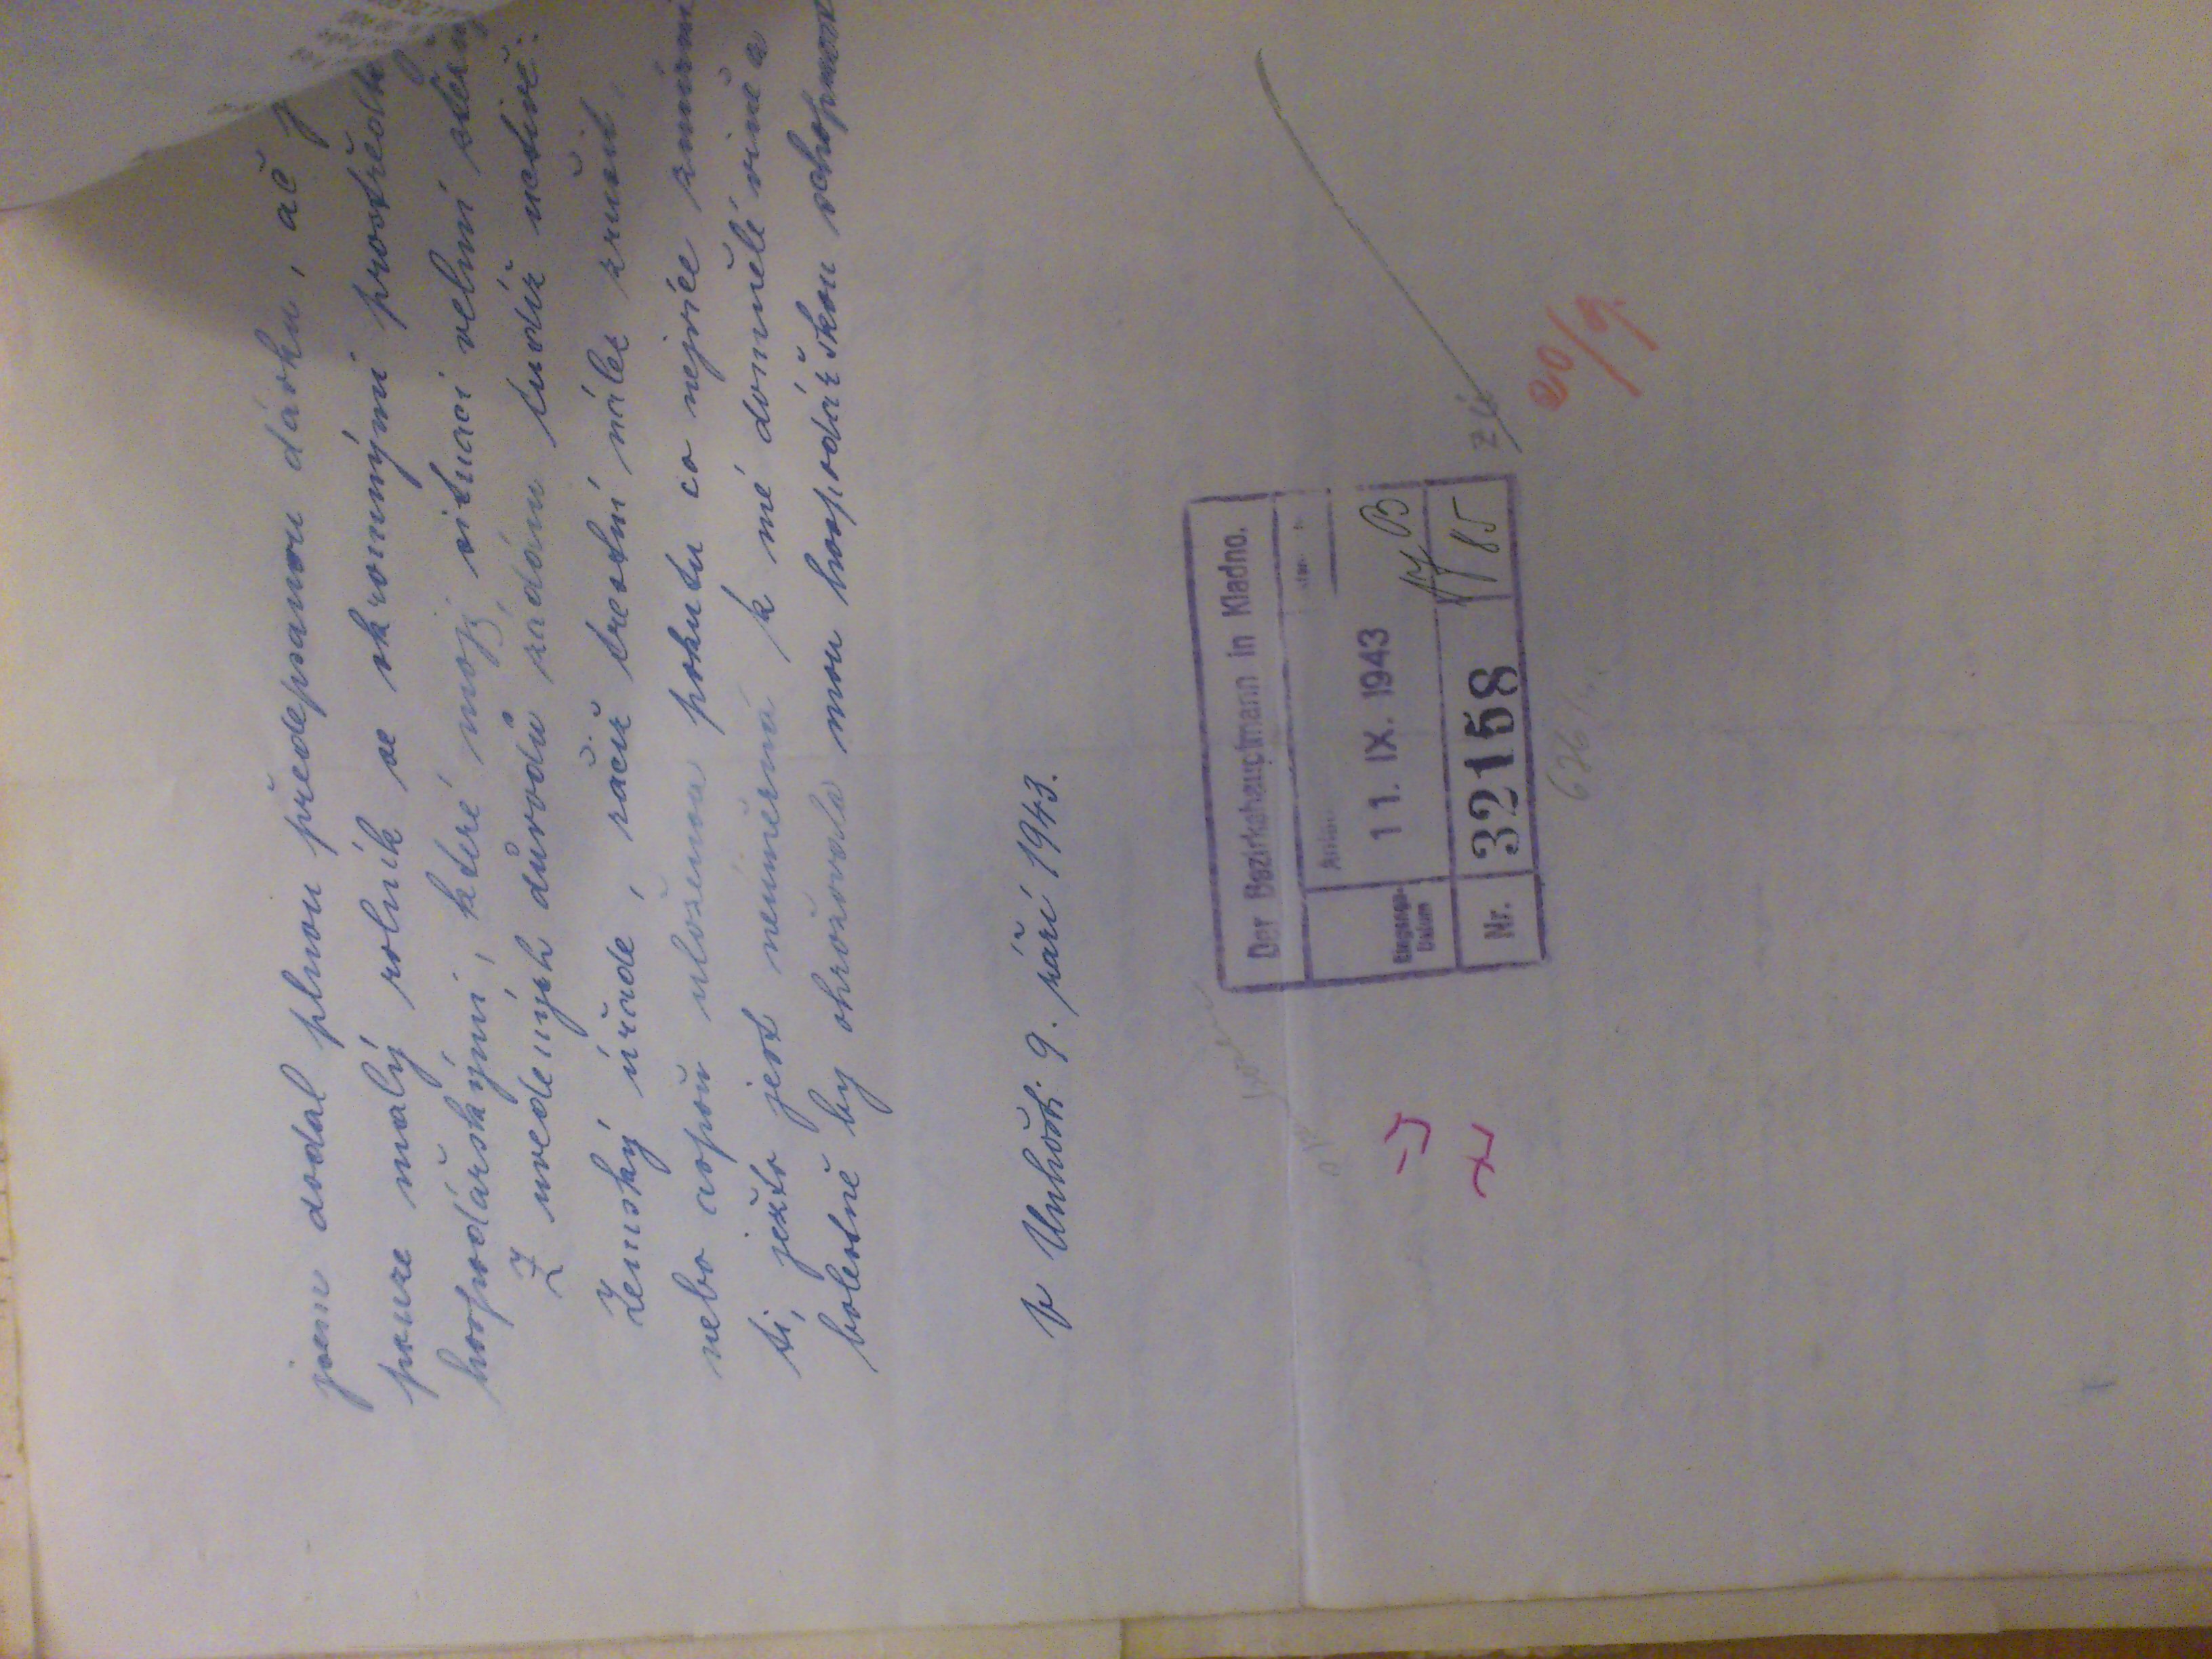 jsem dodal plnou předepsanou dávku, ač
pouze malý rolník se skromnými prostředky
hospodářskými, které moji situaci velmi
Z uvedených důvodů žádám tudíž uctivě:
Zemský úřade, račiž trestní nález zrušit,
nebo aspoň uloženou pokutu co nejvíce zmírni
ti, ježto jest neúměrná k mé domnělé vině a
bolestně by ohrožovala mou hospodářskou schopnost
V Unhošti 9. září 1943.
Der Bezirkshauptmann in Kladno.
Eingangs-
Datum
11. IX. 1943
B
Nr. 32158
85
20/9.